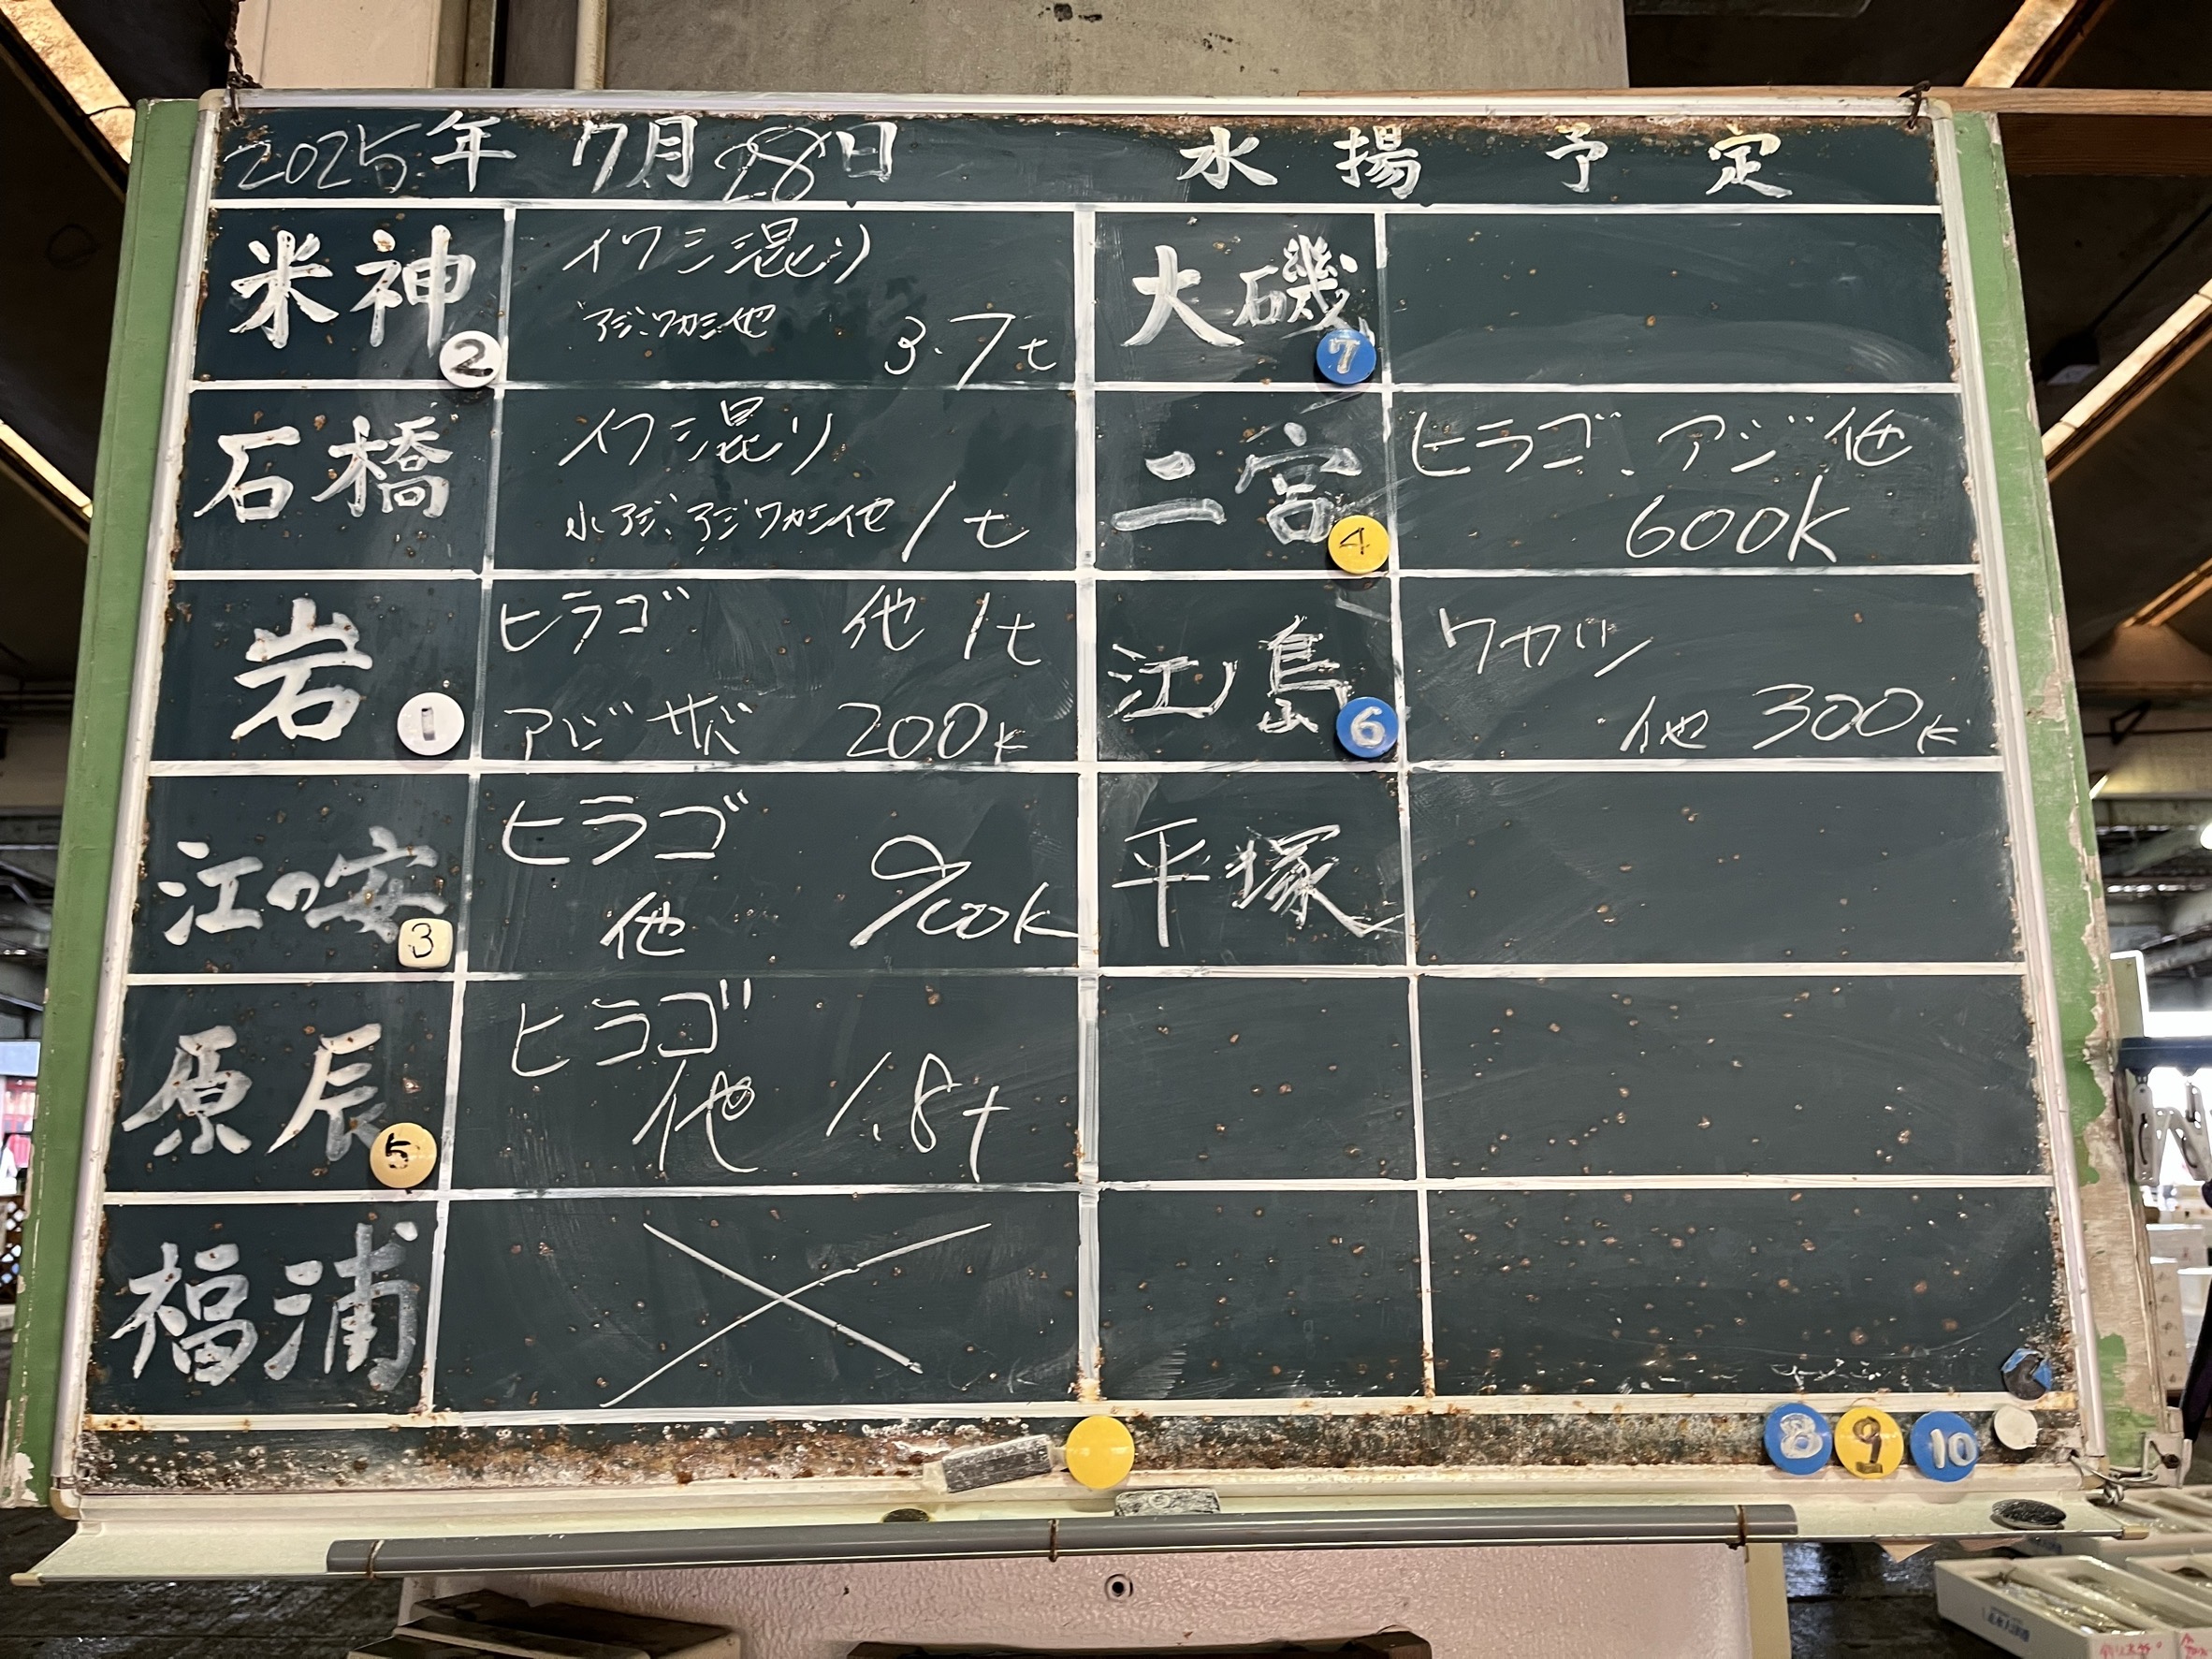 2025年 7月28日 水揚予定
米神 ②
イワシ混り
アジ、ワカシ他 3.7t
石橋
イワシ混り
小アジ、アジ、ワカシ他 1t
岩 1
ヒラゴ 他 1t
アジ サバ 200k
江の安 3
ヒラゴ
他 900k
原辰 5
ヒラゴ
他 1.8t
福浦
×
大磯 7
二宮 4
ヒラゴ、アジ 他
600k
江ノ島 6
ワカシ
他 300k
平塚
8 9 10